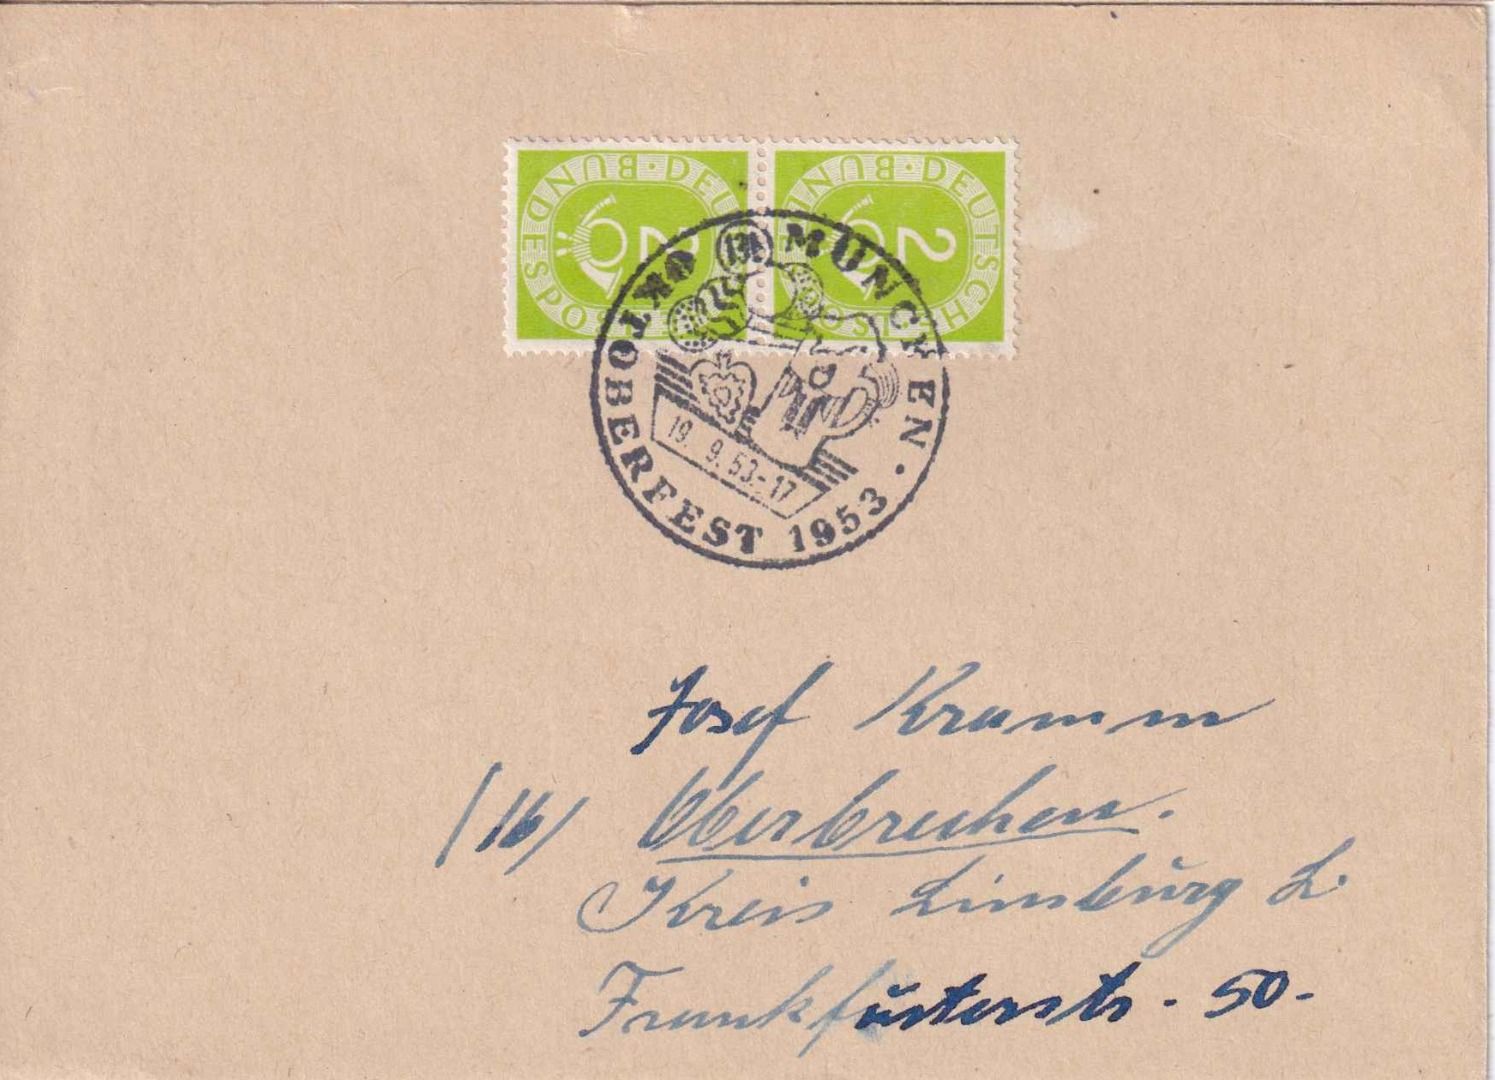 DEUTSCHE BUNDESPOST 2
DEUTSCHE BUNDESPOST 2
MÜNCHEN · OKTOBERFEST 1953 ·
19. 9. 53.-17
Josef Kramm
/16/ Oberbrechen.
Kreis Limburg L.
Frankfurterstr. 50-